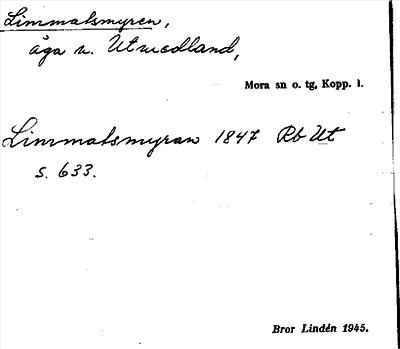 Limmatsmyren,
äga u. Utmedland,
Mora sn o. tg, Kopp. l.
Limmatsmyran 1847 Rb Ut
s. 633.
Bror Lindén 1945.